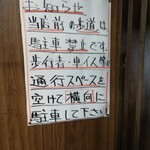 お知らせ
当店前の歩道は
駐車禁止です。
歩行者・車イス等の
通行スペースを
空けて横向に
駐車して下さい